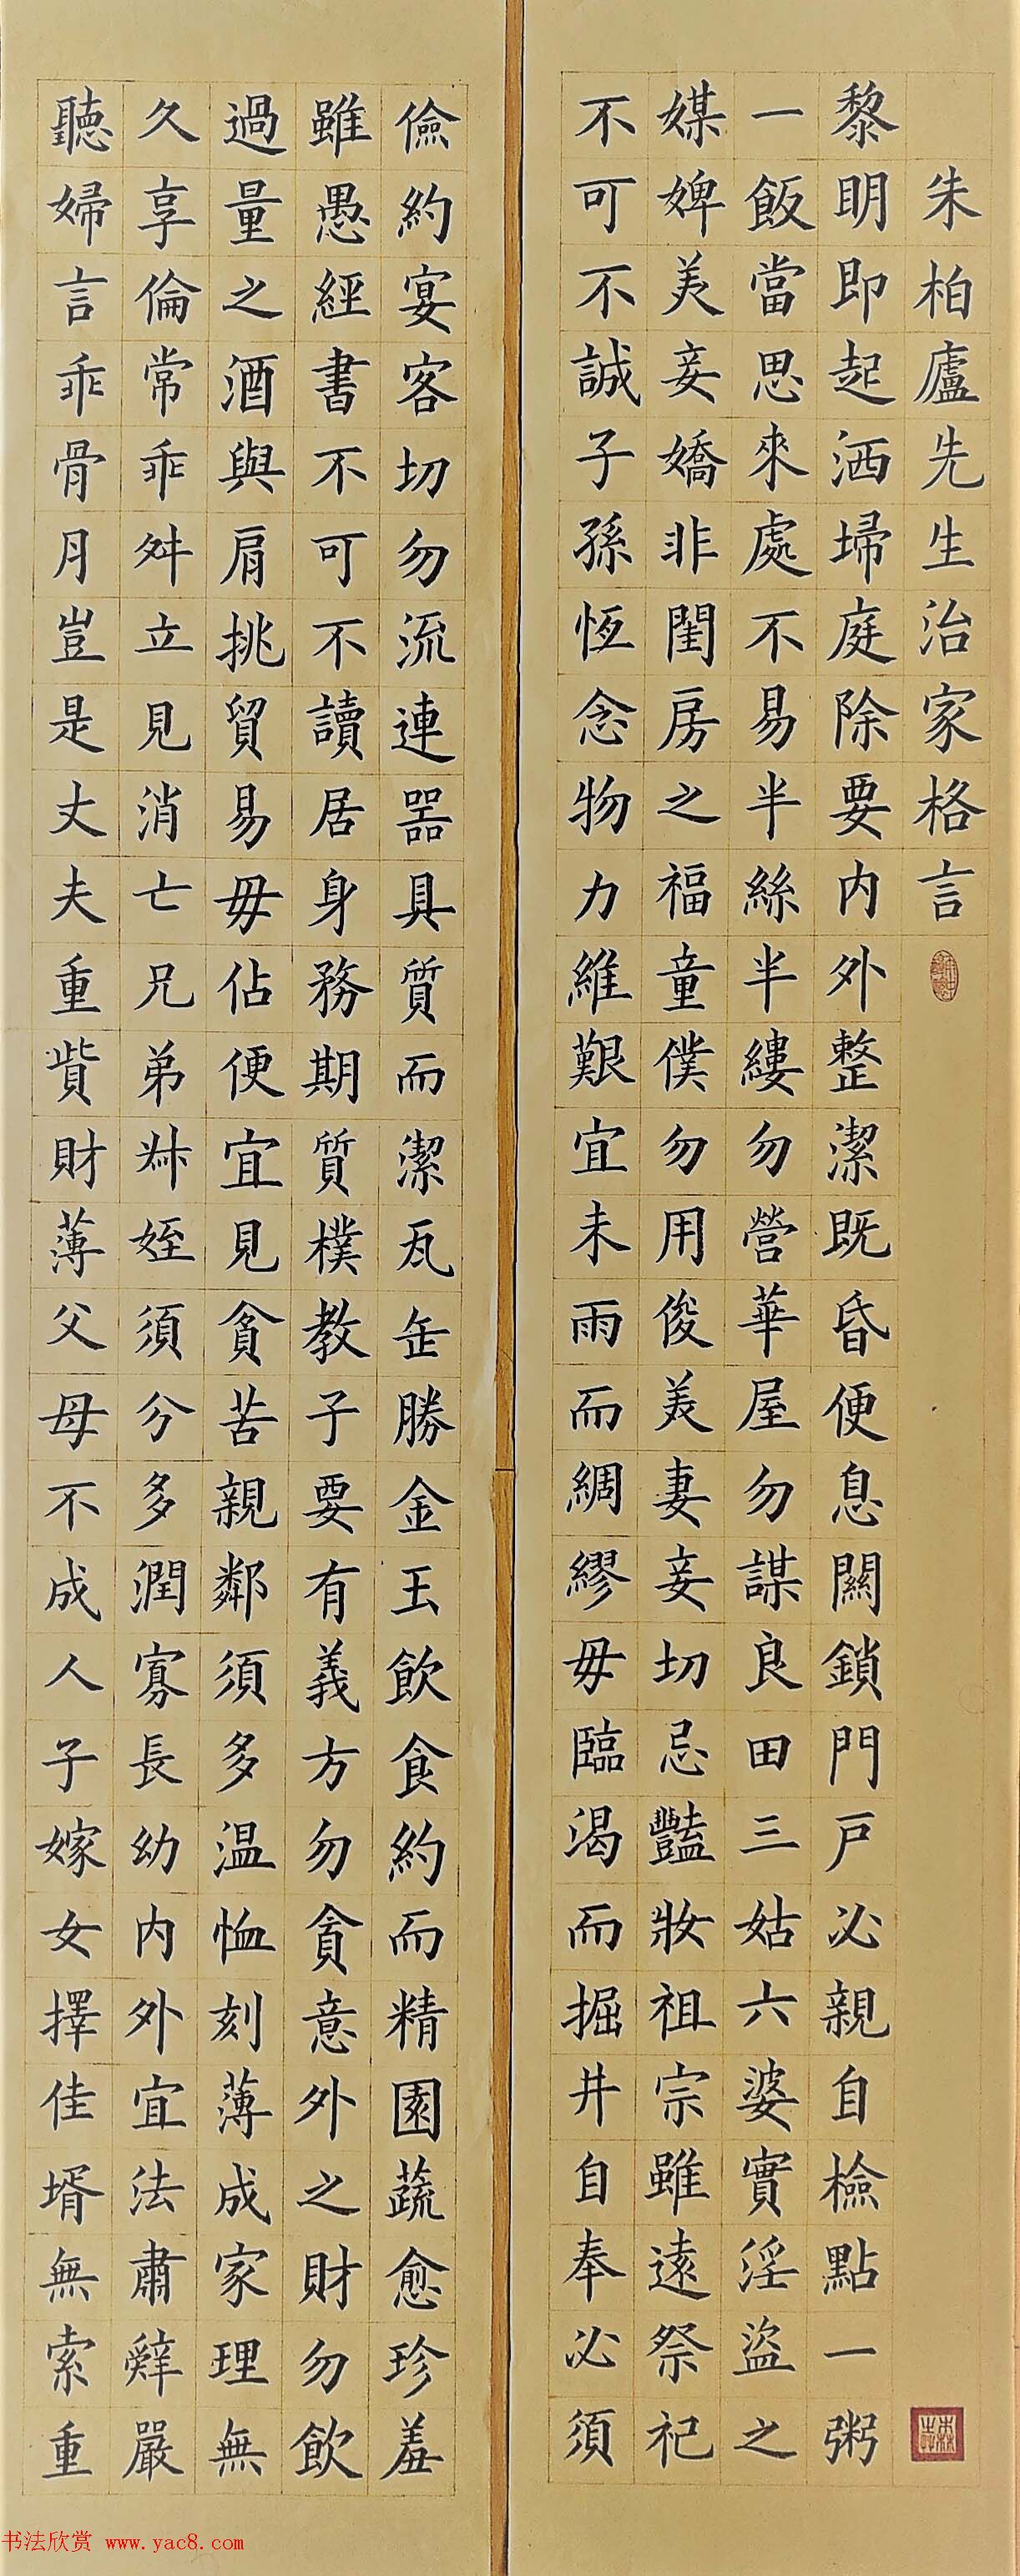 朱柏廬先生治家格言
黎明即起洒埽庭除要内外整潔既昏便息關鎖門戶必親自檢點一粥
一飯當思來處不易半絲半縷勿營華屋勿謀良田三姑六婆實淫盜之
媒婢美妾嬌非閨房之福童僕勿用俊美妻妾切忌豔妝祖宗雖遠祭祀
不可不誠子孫恆念物力維艱宜未雨而綢繆毋臨渴而掘井自奉必須
儉約宴客切勿流連器具質而潔瓦缶勝金玉飲食約而精園蔬愈珍羞
雖愚經書不可不讀居身務期質樸教子要有義方勿貪意外之財勿飲
過量之酒與肩挑貿易毋佔便宜見貧苦親鄰須多温恤刻薄成家理無
久享倫常乖舛立見消亡兄弟叔姪須分多潤寡長幼内外宜法肅辭嚴
聽婦言乖骨月豈是丈夫重貲財薄父母不成人子嫁女擇佳壻無索重
书法欣赏 www.yac8.com